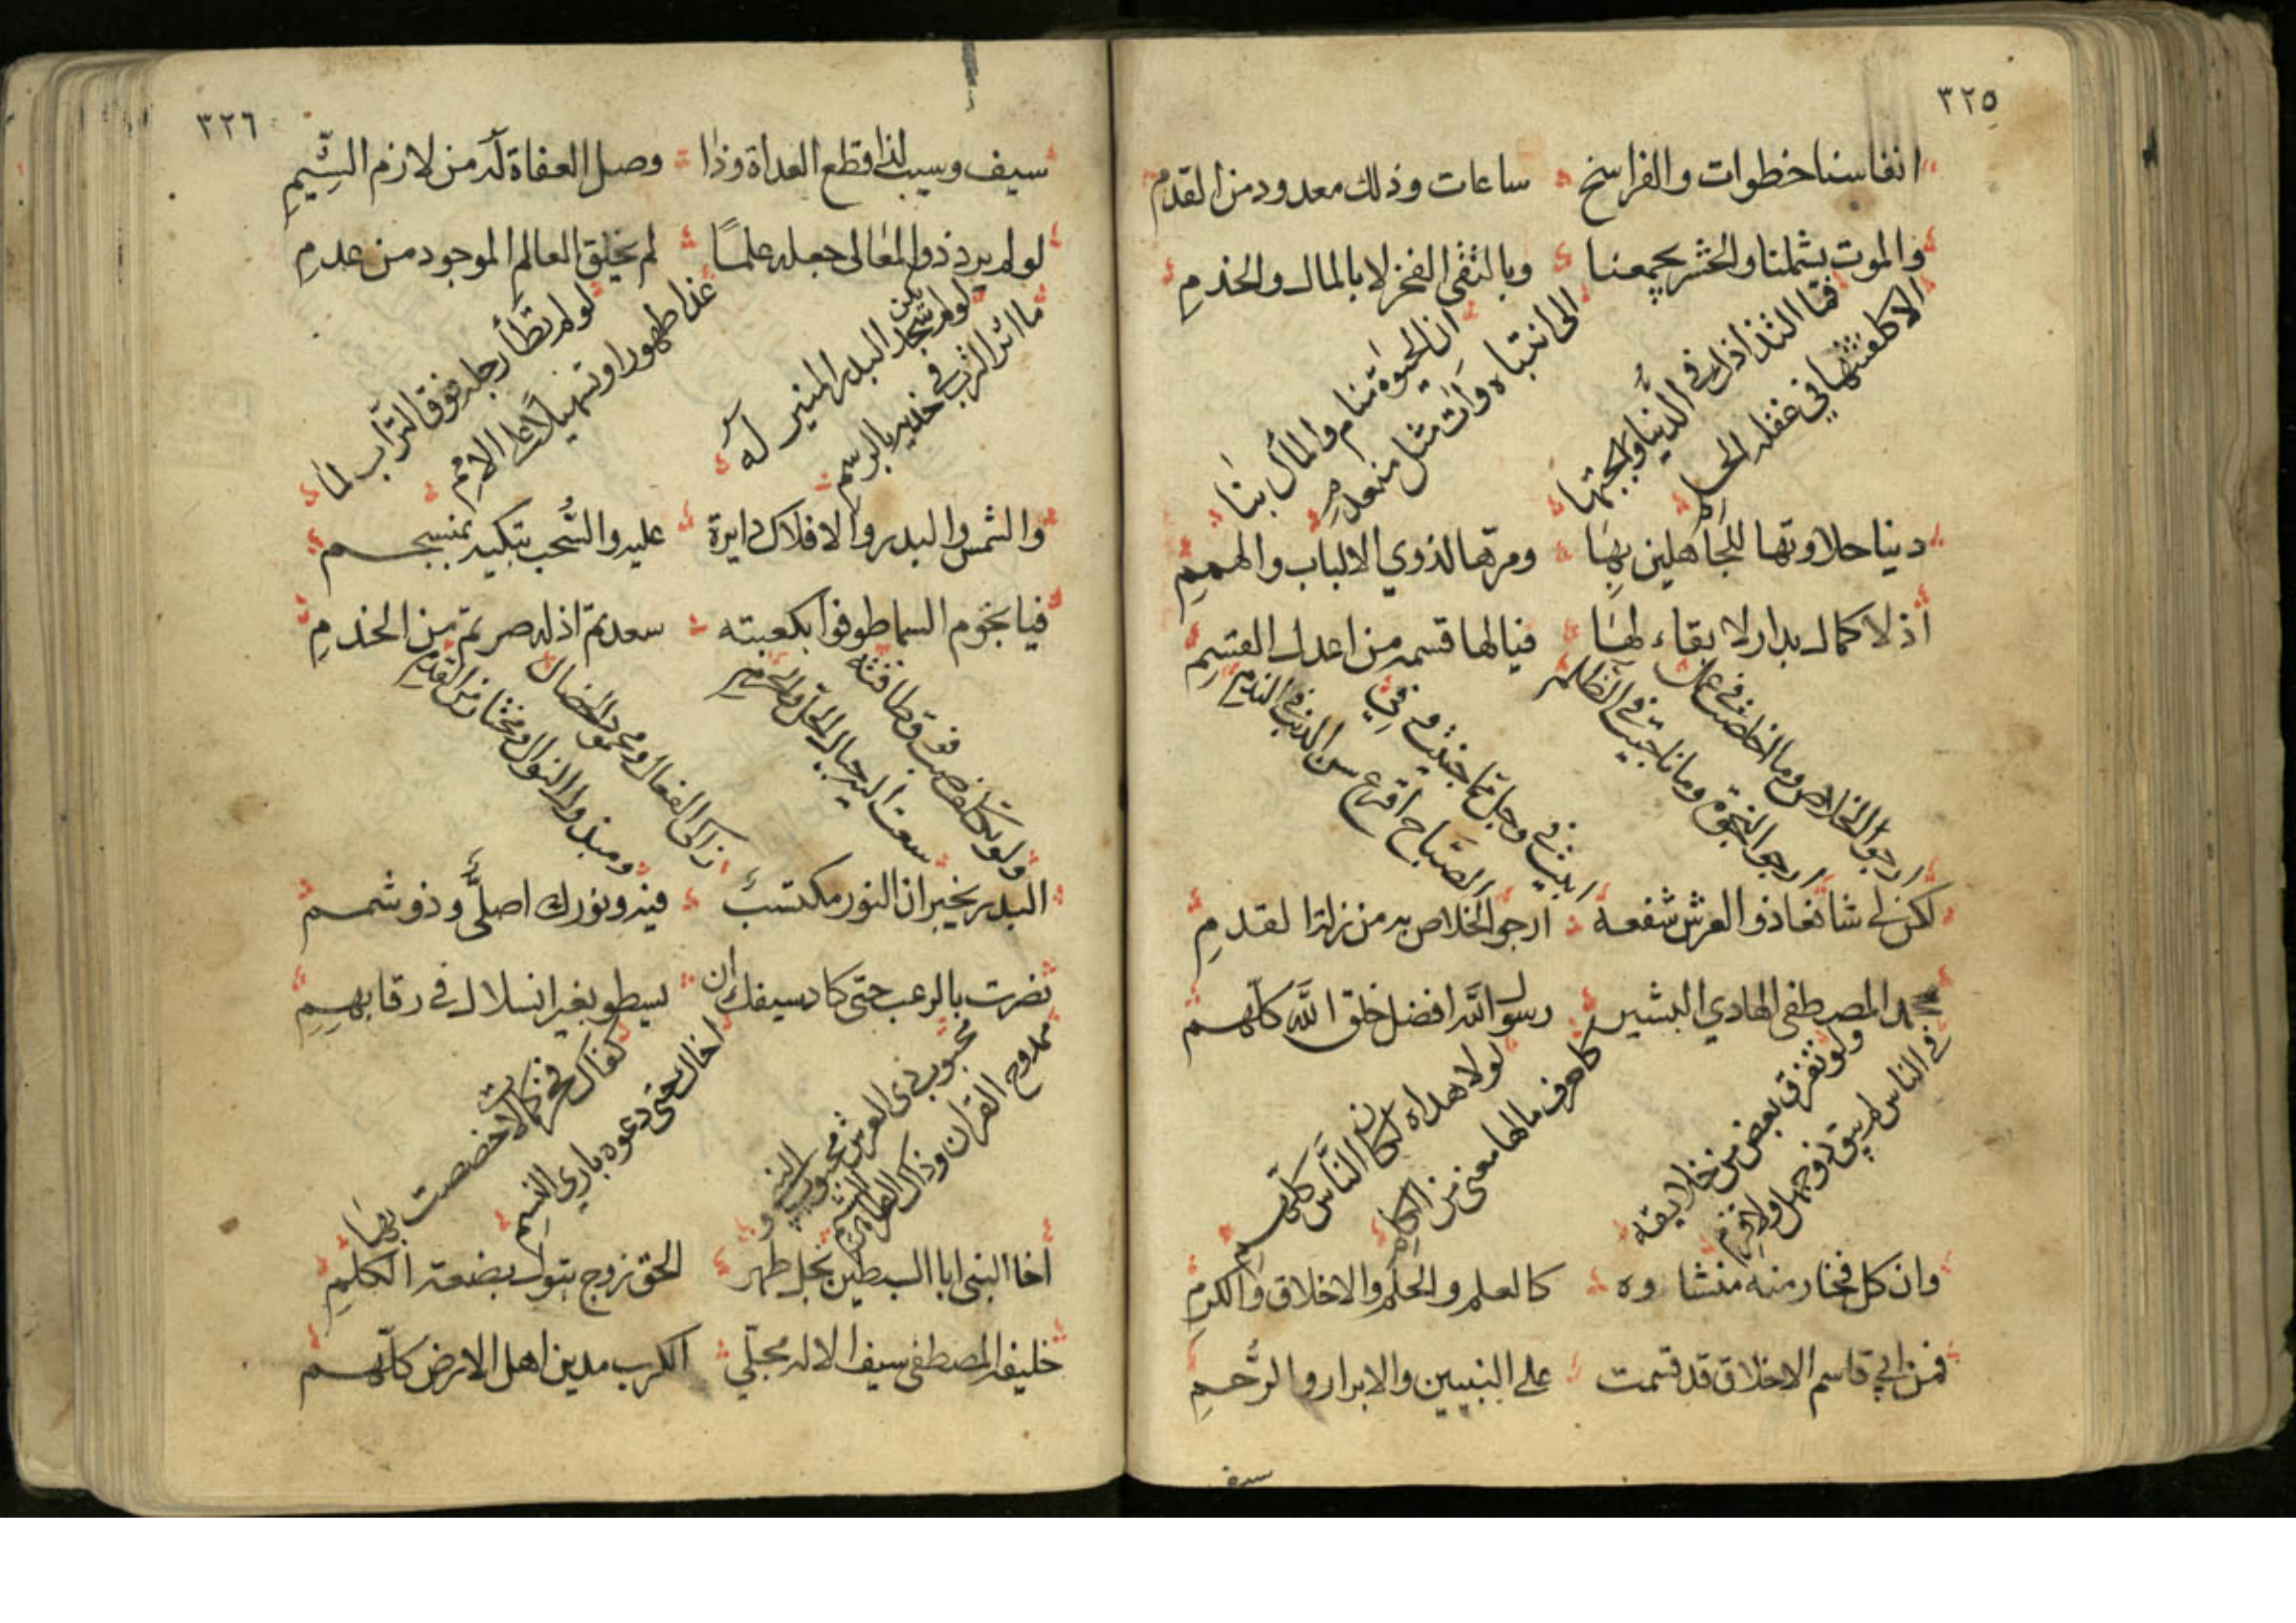 ٣٢٥
انفاسنا خطوات والفراسخ ساعات وذلك معدود من القدم
والموت يشملنا والحشر يجمعنا وبالتقى الفخر لا بالمال والخدم
فما التذاذك في الدنيا وبهجتها
الا كلعشتها في غفلة الحلم
ان الحيوة منام والمآل بنا
الى انتباه وآت مثل منعدم
دنيا حلاوتها للجاهلين بها ومرّها لذوي الالباب والهمم
اذ لا كمال بدار لا بقاء لها فيا لها قسمه من اعدل القسم
ارجوا الخلاص وما اخلصت في عمل
ارجوا النجوة وما ناجيت في الظلم
ابيت في وجل مما جنيت وفي
الصباح اقرع سن الذنب في الندم
لكن لي شافعا ذو العرش شفعه ارجو الخلاص به من زلة القدم
محمد المصطفى الهادي البشير رسول الله افضل خلق الله كلهم
ولو تفرق بعض من خلايقه
في الناس لم يبق ذو جهل ولا قزم
لولا هداه لكان الناس كلهم
كاحرف ما لها معنى من الكلم
وان كل فخار منه منشاوه كالعلم والحلم والاخلاق والكرم
فمن ابي قاسم الاخلاق قد قسمت على النبيين والابرار والرحم
سيف
٣٢٦
سيف وسيب لذا قطع العداة وذا وصل العفاة له من لازم الشيم
لو لم يرد ذو المعالي جعله علما لم يخلق العالم الموجود من عدم
لو لم يكن سجد البدر المنير له
ما اثر الترب في خديه بالرسم
لو لم تطأ رجله فوق التراب لما
غدا طهورا وتسهيلا على الامم
والشمس والبدر والافلاك دايرة عليه والسحب تبكيه بمنسجم
فيا نجوم السما طوفوا بكعبته سعد تم اذ له صرتم من الخدم
سعت اليه جبال الحل والحرم
زاكى الفعال ومحمود الخصال
ومبذول النوال ومختار من القدم
البدر يخبر ان النور مكتسب فيه ونورك اصلي وذو شمم
نصرت بالرعب حتى كاد سيفك ان يسطو بغير انسلال في رقابهم
محبوب ذي العرش محبوب النبي و
ممدوح القران وذاك الطاهر الشيم
كفاك فخر كمالات خصصت بها
اخاك حتى دعوه باري النسم
اخا النبي ابا السبطين نجل طهر الحق زوج بتول بضعة الكلم
خليفة المصطفى سيف الاله مجلي الكرب مدين اهل الارض كلهم